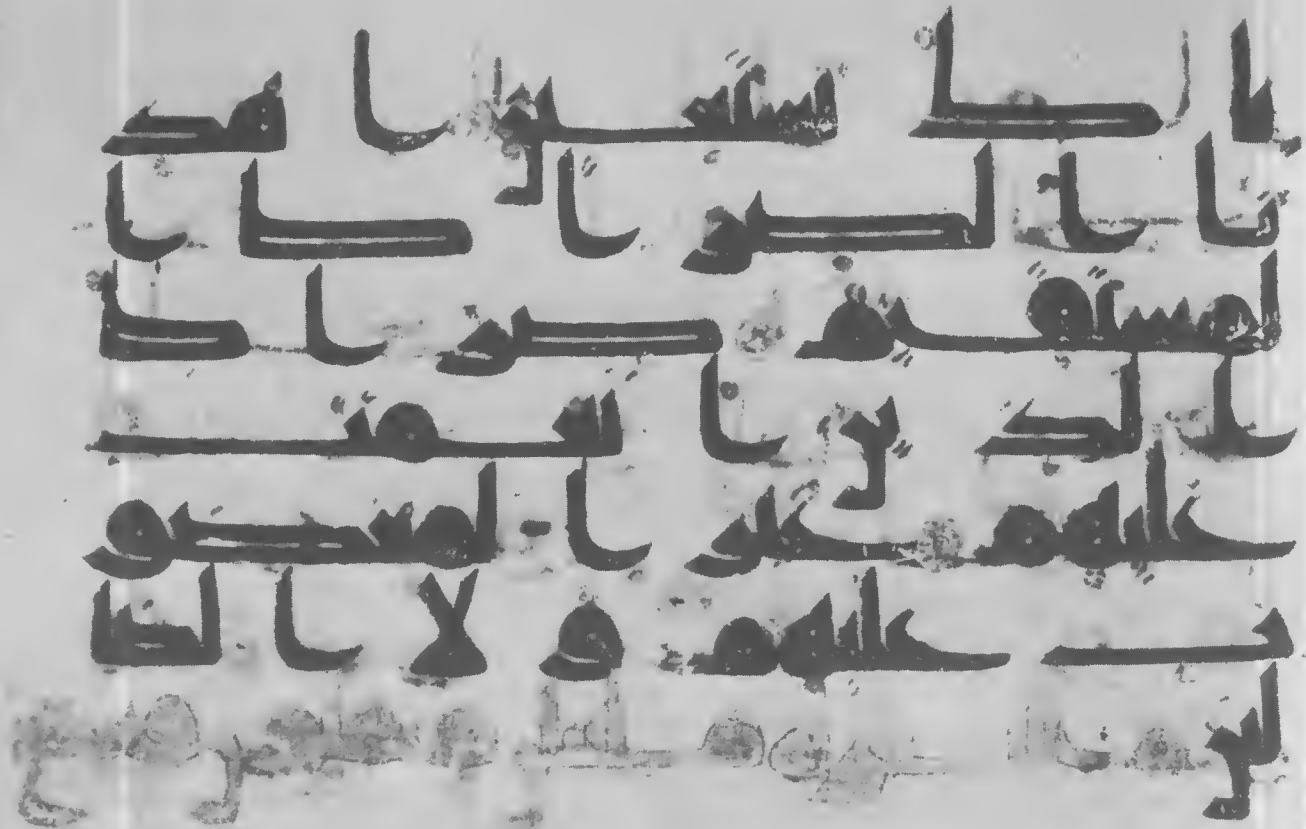 ياك نستعين اهد
نا الصرط ا
لمستقيم صرط
الذين انعمت
عليهم غير المغضو
ب عليهم ولا الضا
لين